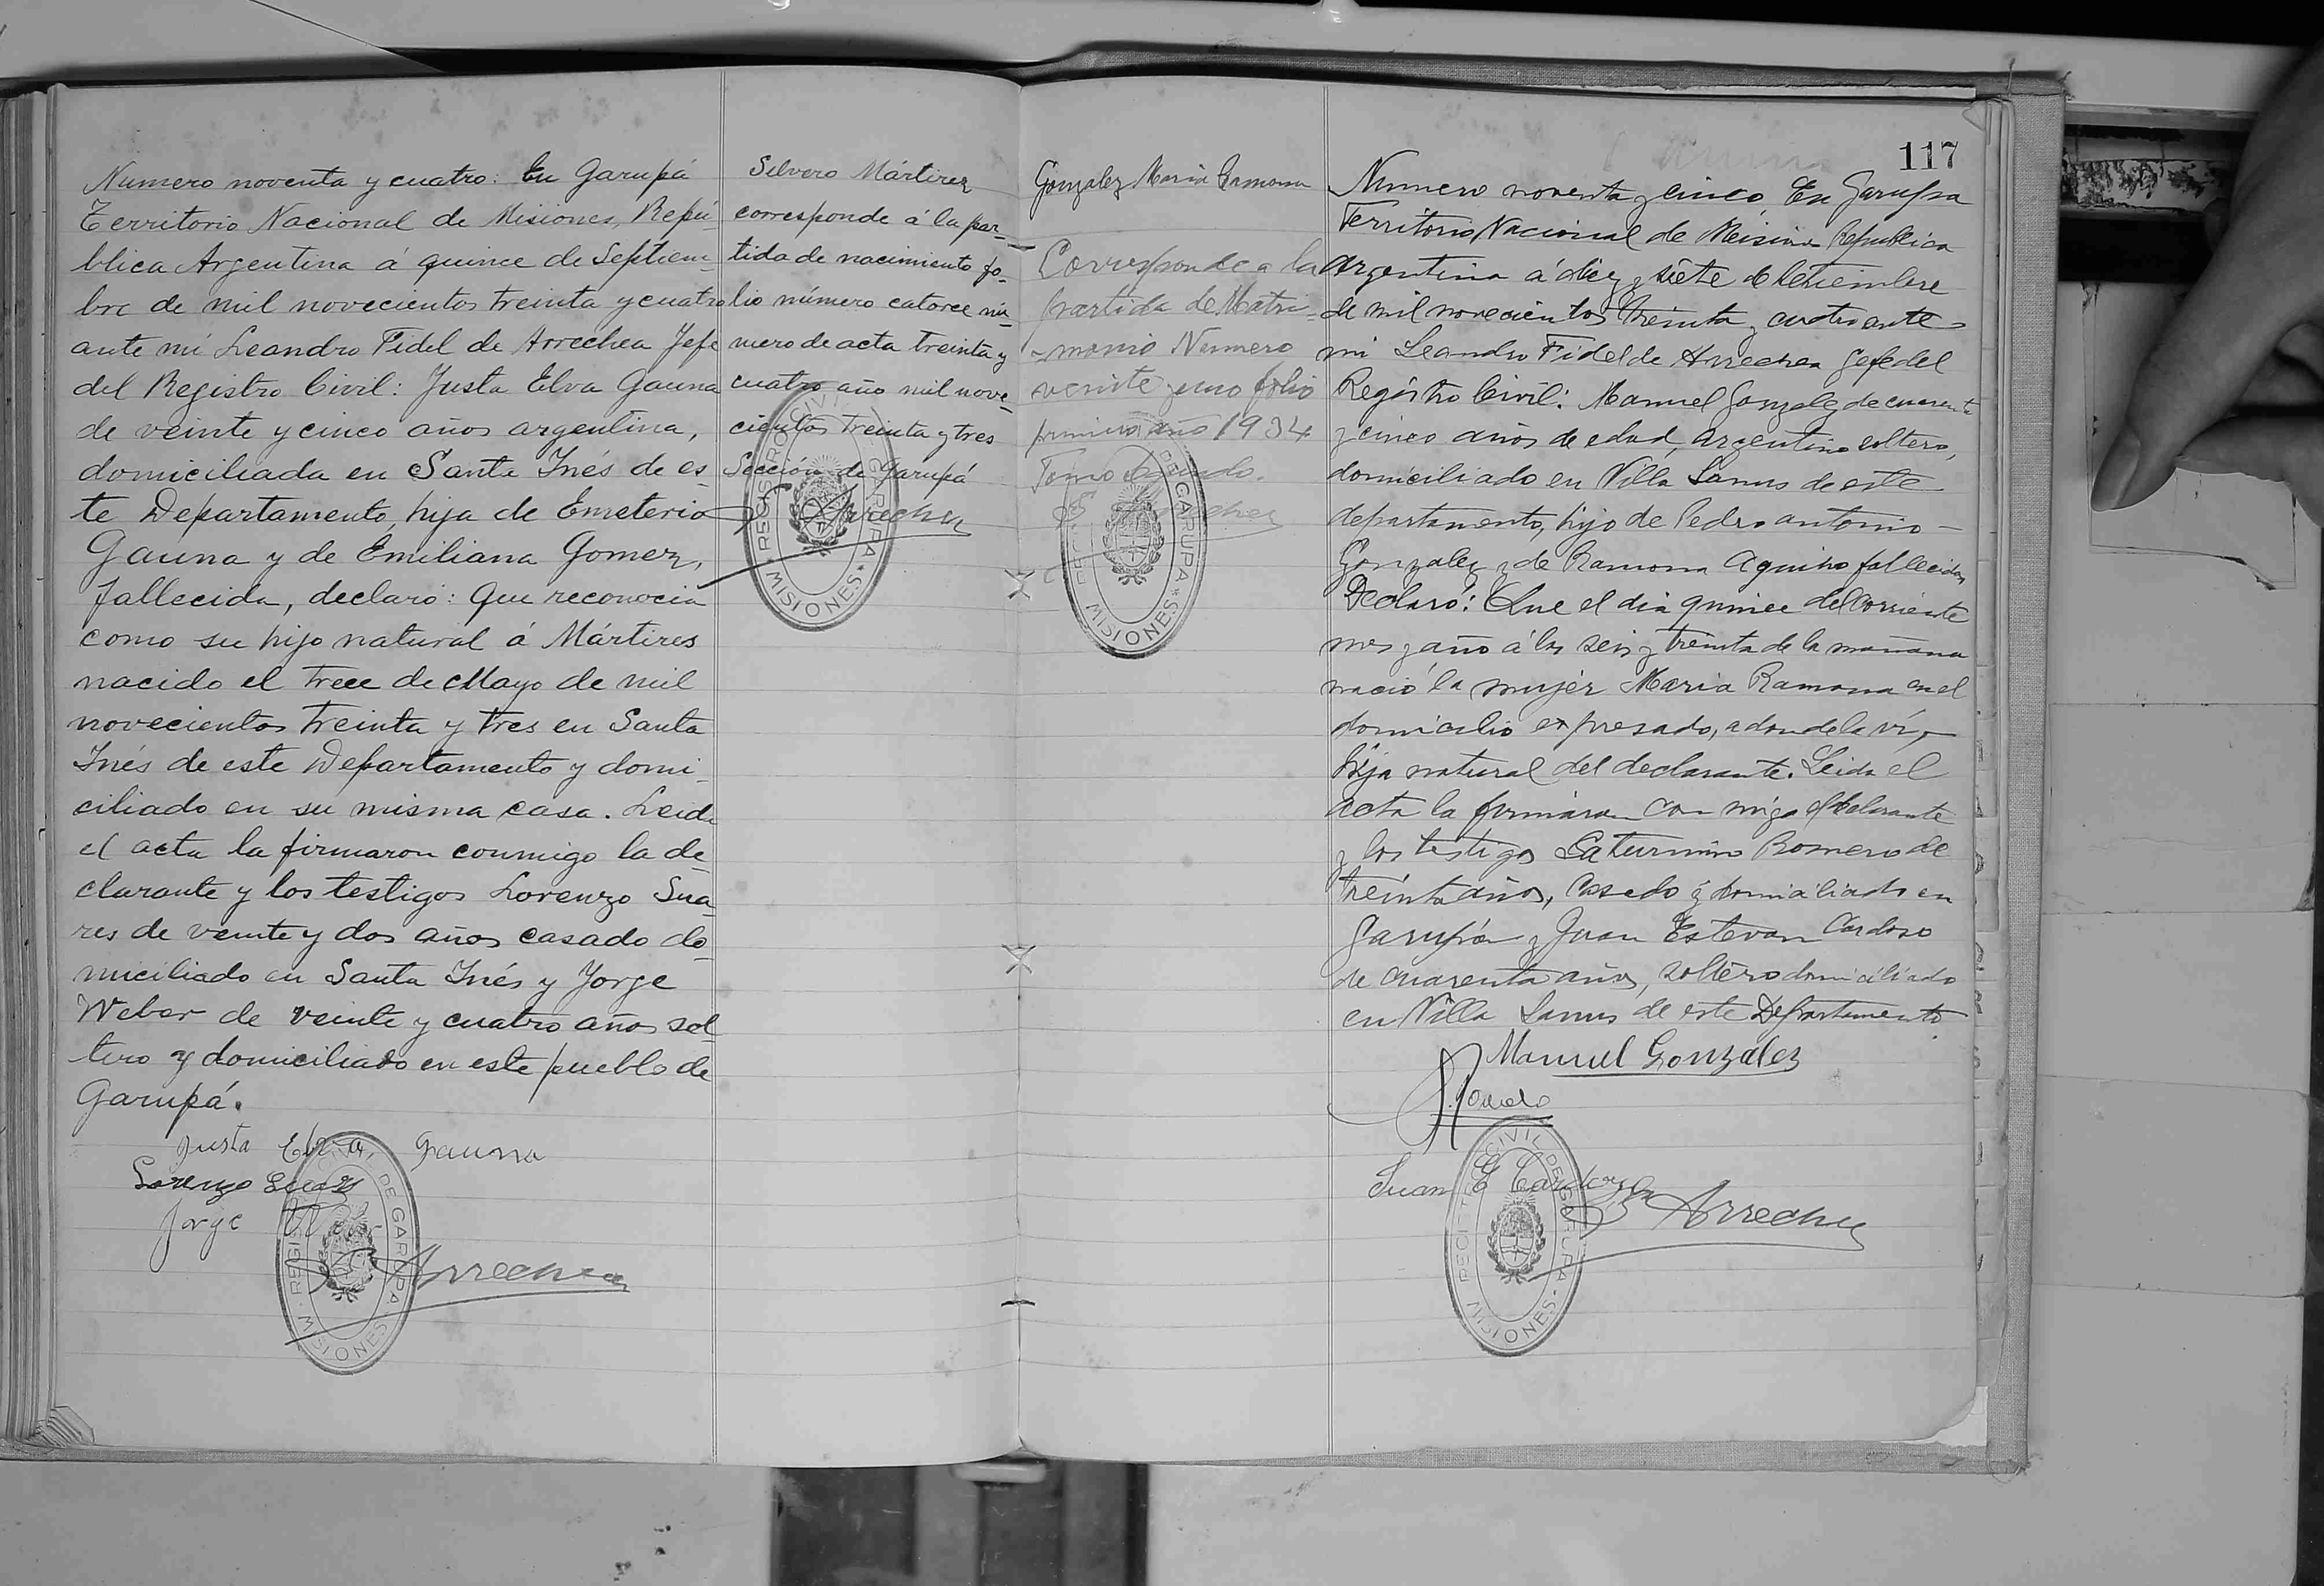 Numero noventa y cuatro: En Garupá
Territorio Nacional de Misiones, Repú-
blica Argentina á quince de Septiem-
bre de mil novecientos treinta y cuatro
ante mi Leandro Fidel de Arrechea Jefe
del Registro Civil: Justa Elva Gauna
de veinte y cinco años argentina,
domiciliada en Santa Inés de es-
te Departamento, hija de Emeterio
Gauna y de Emiliana Gomez,
fallecida, declaró: Que reconocia
como su hijo natural á Mártires
nacido el trece de Mayo de mil
novecientos treinta y tres en Santa
Inés de este Departamento y domi-
ciliado en su misma casa. Leida
el acta la firmaron conmigo la de-
clarante y los testigos Lorenzo Sua-
res de veinte y dos años casado do-
miciliado en Santa Inés y Jorge
Weber de veinte y cuatro años sol-
tero y domiciliado en este pueblo de
Garupá.
Justa Elva Gauna
Lorenzo
Jorge
Arrechea
REGISTRO CIVIL DE GARUPA
MISIONES
Silvero Mártirez
corresponde á la par-
tida de nacimiento fo-
lio número catorce nú-
mero de acta treinta y
cuatro año mil nove-
cientos treinta y tres
Sección de Garupá
Arrechea
REGISTRO CIVIL GARUPA
MISIONES
Gonzalez Maria Ramona
Corresponde a la
partida de Matri-
monio Numero
veinte y uno folio
primero año 1934
Tomo segundo.
Arrechea
DE GARUPA
MISIONES
117
Numero noventa y cinco, En Garupa
Territorio Nacional de Misiones Republica
Argentina á diez y siete de Setiembre
de mil novecientos treinta y cuatro ante
mi Leandro Fidel de Arrechea Gefe del
Registro Civil: Manuel Gonzalez de cuarenta
y cinco años de edad, argentino soltero,
domiciliado en Villa Lanus de este
departamento, hijo de Pedro antonio
Gonzalez y de Ramona Aquino fallecidos
Declaró: Que el dia quince del corriente
mes y año á las seis y treinta de la mañana
nació la mujer Maria Ramona en el
domicilio expresado, a donde la ví,
hija natural del declarante. Leida el
acta la firmaron con migo el declarante
y los testigos Saturnino Romero de
treinta años, casado y domiciliado en
Garupá y Juan Estevan Cardozo
de cuarenta años, soltero domiciliado
en Villa Lanus de este Departamento.
Manuel Gonzalez
Juan E Cardozo
Arrechea
CIVIL DE GARUPA
MISIONES